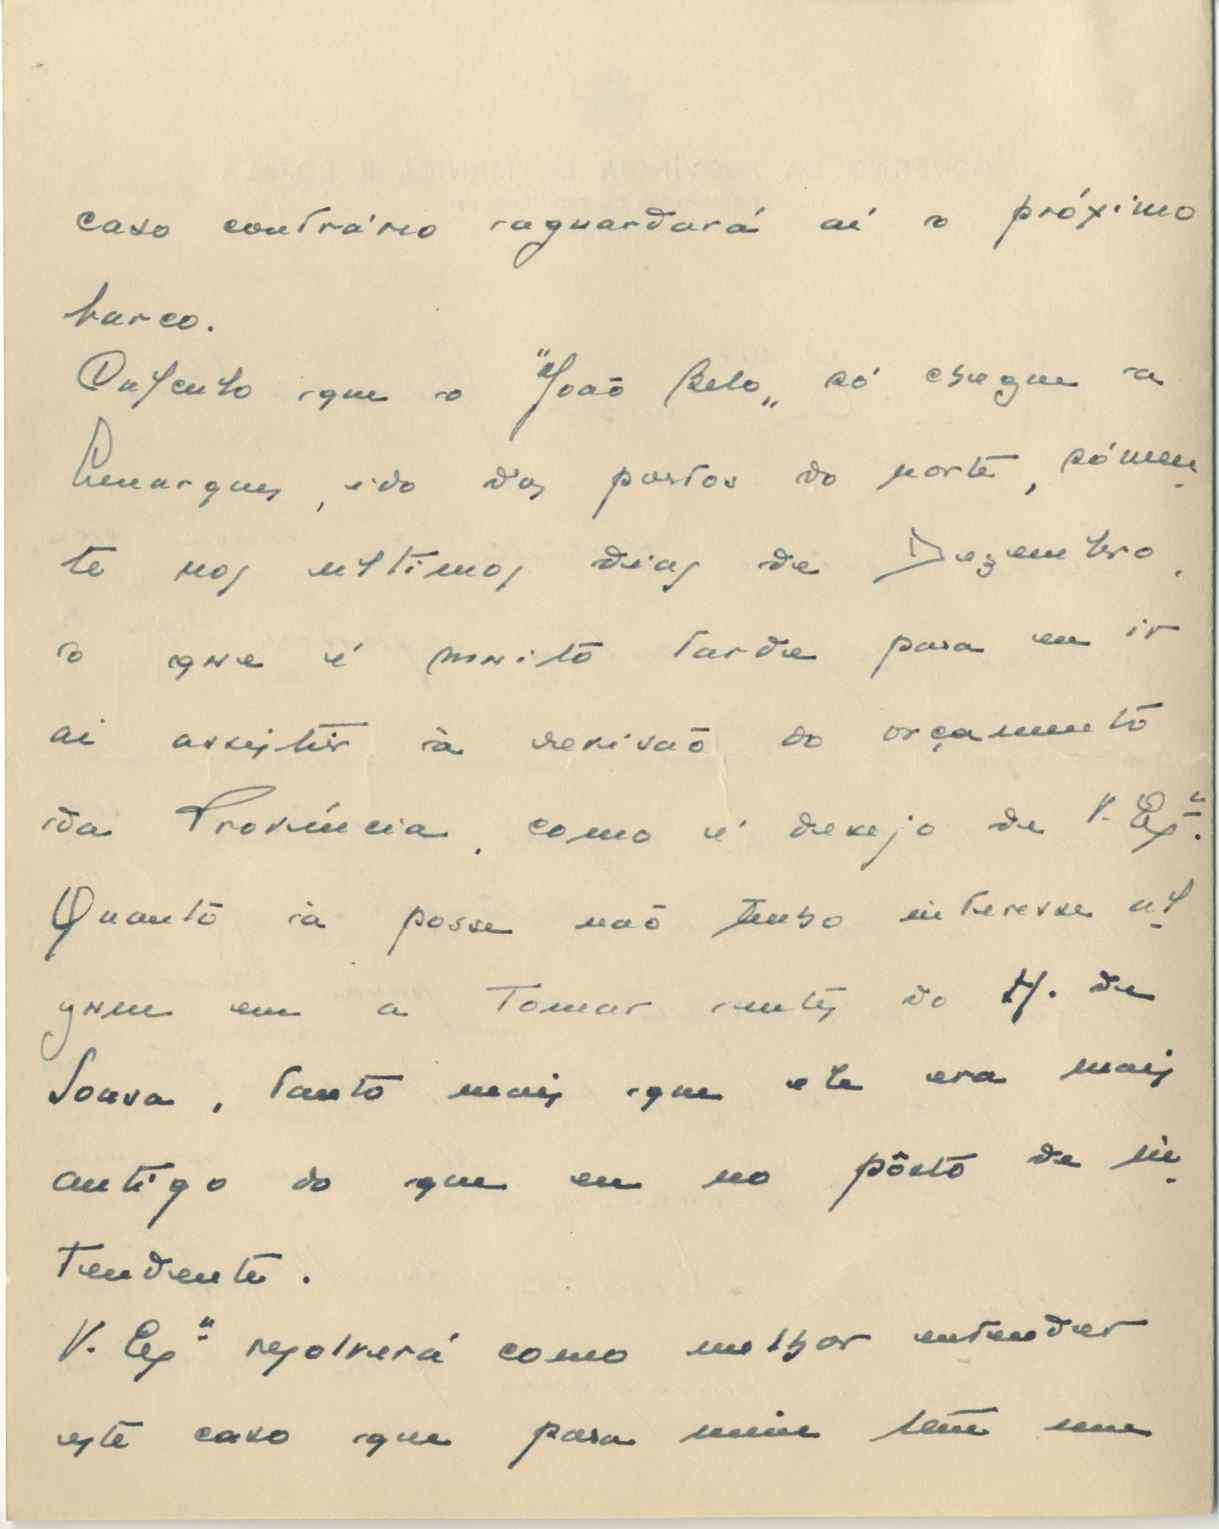 caso contrário aguardará aí o próximo
barco.
Calculo que o "João Belo„ só chegue a
Lourenço Marques, ido dos portos do norte, sómen-
te nos ultimos dias de Dezembro,
o que é muito tarde para eu ir
aí assistir à revisão do orçamento
da Província, como é desejo de V. Exª.
Quanto à posse não tenho interesse al-
gum em a tomar antes do H. de
Sousa, tanto mais que ele era mais
antigo do que eu no pôsto de in-
tendente.
V. Exª resolverá como melhor entender
este caso que para mim tem um